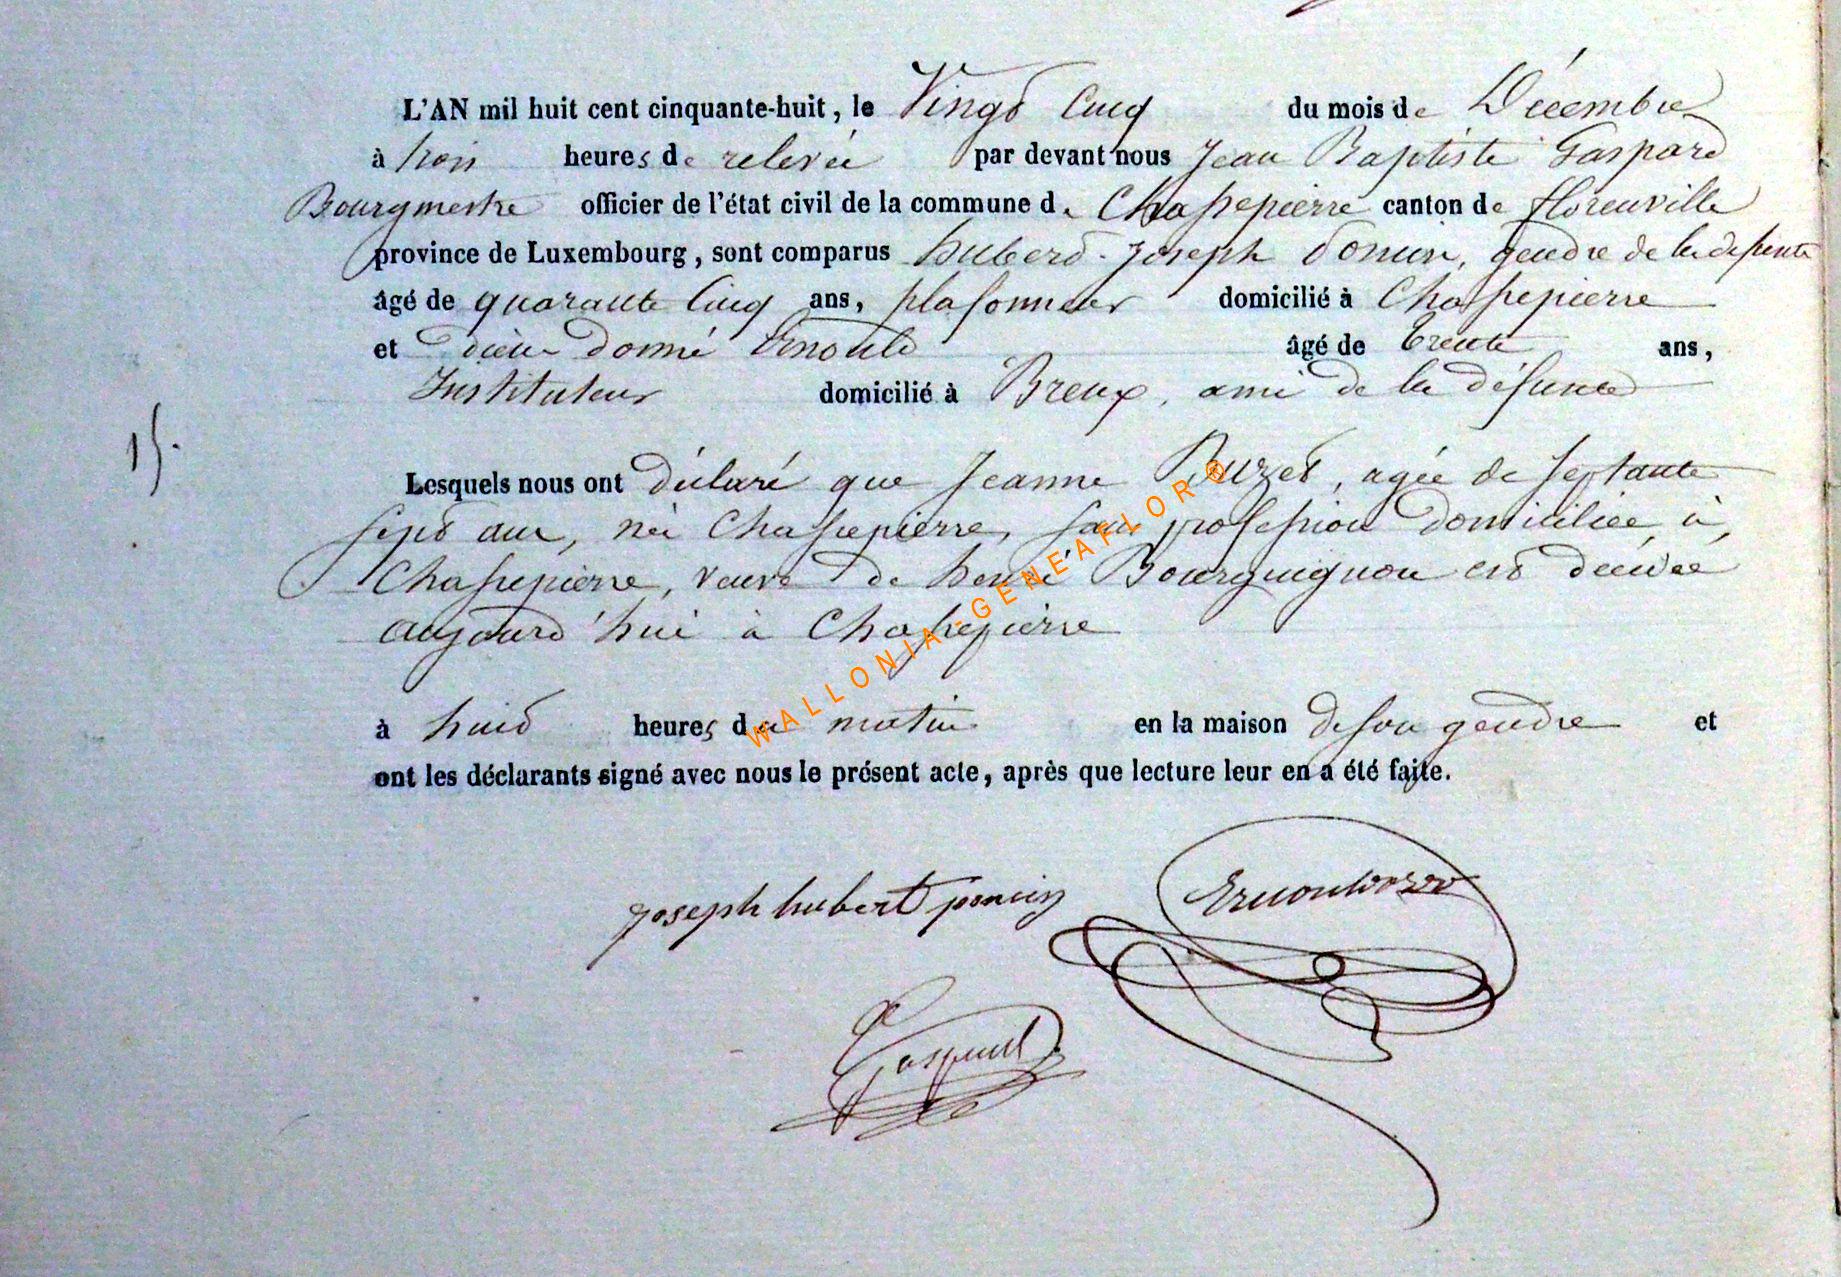 L'AN mil huit cent cinquante-huit, le Vingt Cinq du mois de Décembre
à trois heures de relevée par devant nous Jean Baptiste Gaspard
Bourgmestre officier de l'état civil de la commune de Chassepierre canton de florenville
province de Luxembourg, sont comparus hubert Joseph Poncin, gendre de la défunte
âgé de quarante Cinq ans, plafonneur domicilié à Chassepierre
et dieu donné Ernould âgé de trente ans,
Instituteur domicilié à Breux, ami de la défunte
15.
Lesquels nous ont déclaré que Jeanne Buzet, agée de septante
sept ans, née Chassepierre, sans profession domiciliée à,
Chassepierre, veuve de henri Bourguignon est décédée
aujourd'hui à Chassepierre
à huit heures du matin en la maison de son gendre et
ont les déclarants signé avec nous le présent acte, après que lecture leur en a été faite.
joseph hubert poncin
Gaspard
WALLONIA-GENEAFLOR®